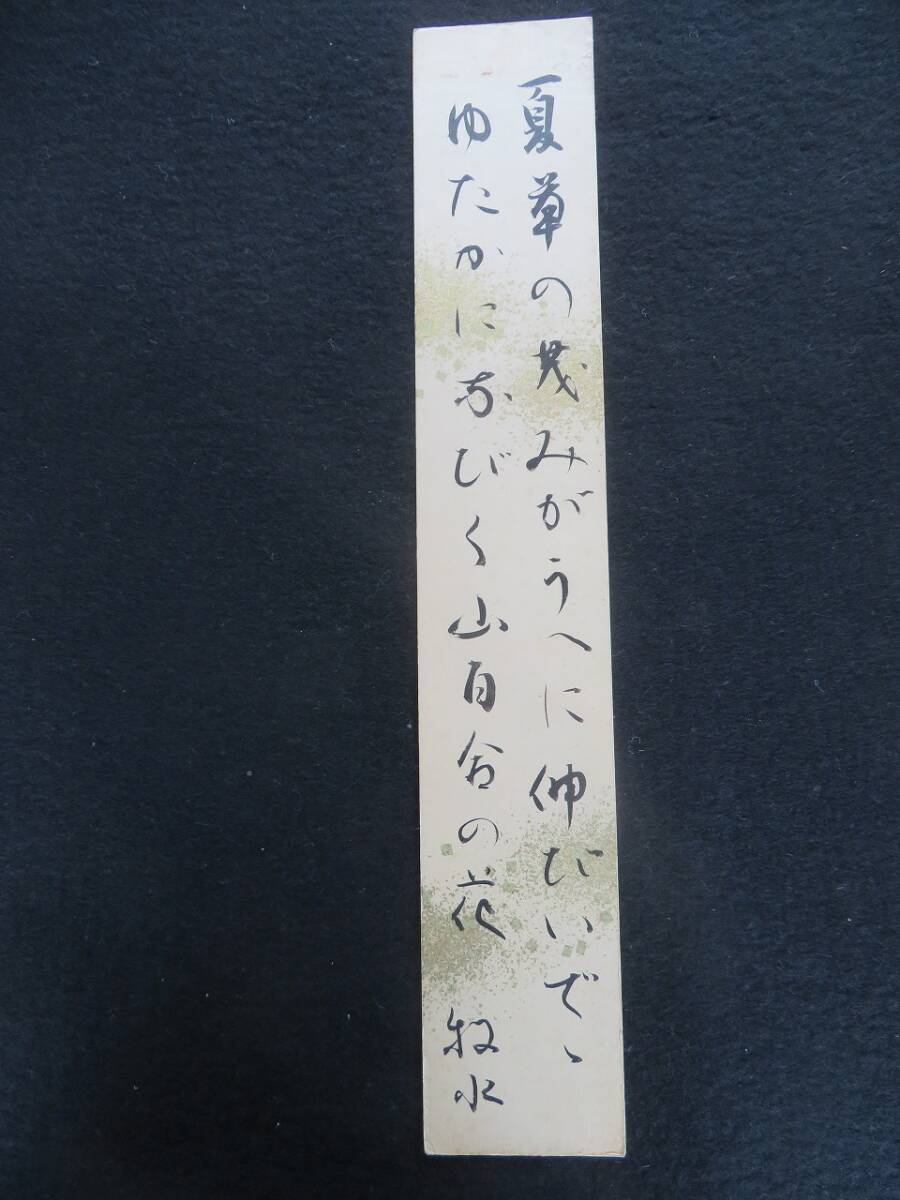 夏草の茂みがうへに伸びいでゝ
ゆたかになびく山百合の花 牧水